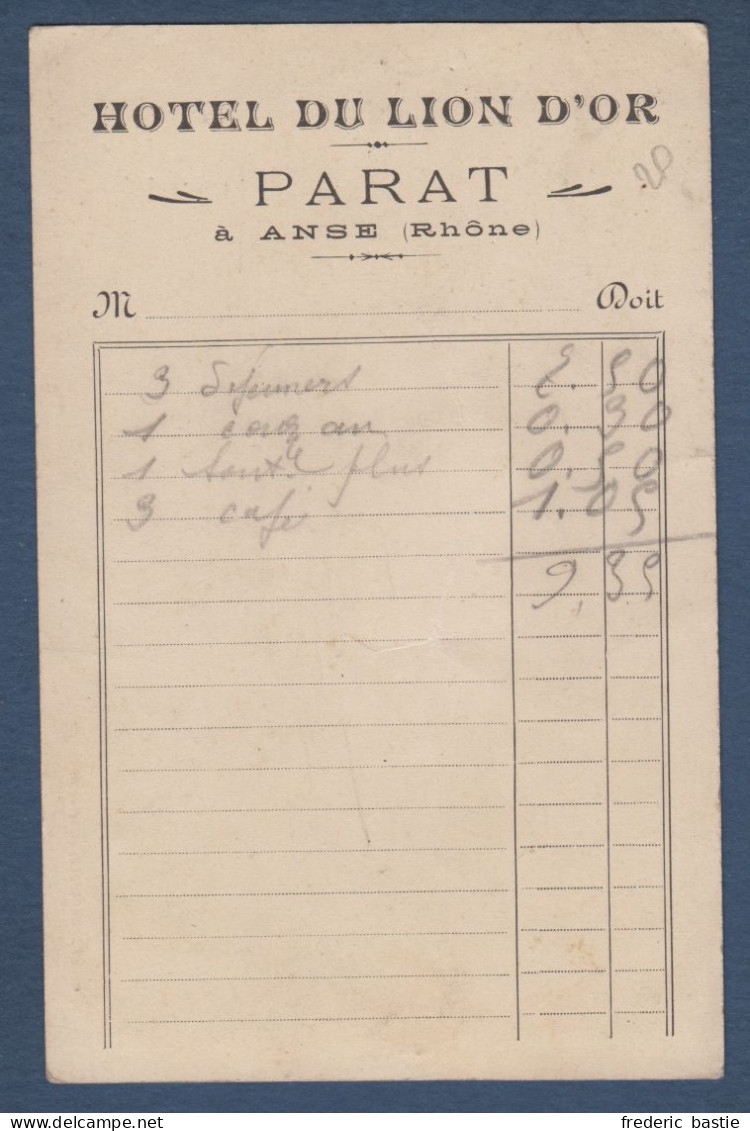 HOTEL DU LION D'OR
PARAT
20
à ANSE (Rhône)
M Doit
3 Déjeuners 7.50
1 0.30
1 plus 0.50
3 café 1.05
9,35
frederic bastie